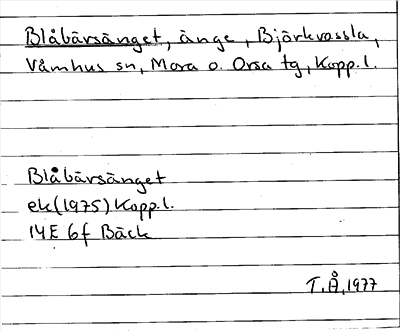 Blåbärsänget, änge, Bjärkvassla,
Våmhus sn, Mora o. Orsa tg, Kopp.l.
Blåbärsänget
ek(1975)Kopp.l.
14E 6f Bäck
T.Å,1977